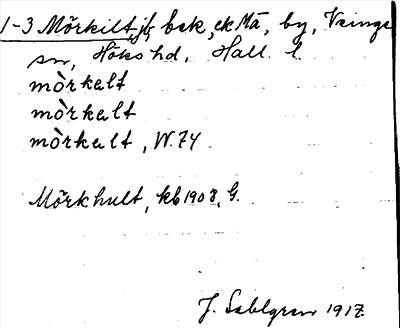 1-3 Mörkilt, jb, bsk, ek Mä, by, Veinge
sn, Höks hd, Hall. l.
mòrkalt
mòrkalt
mòrkalt, W.74
Mörkhult, kb 1908, G.
J. Sahlgren 1917